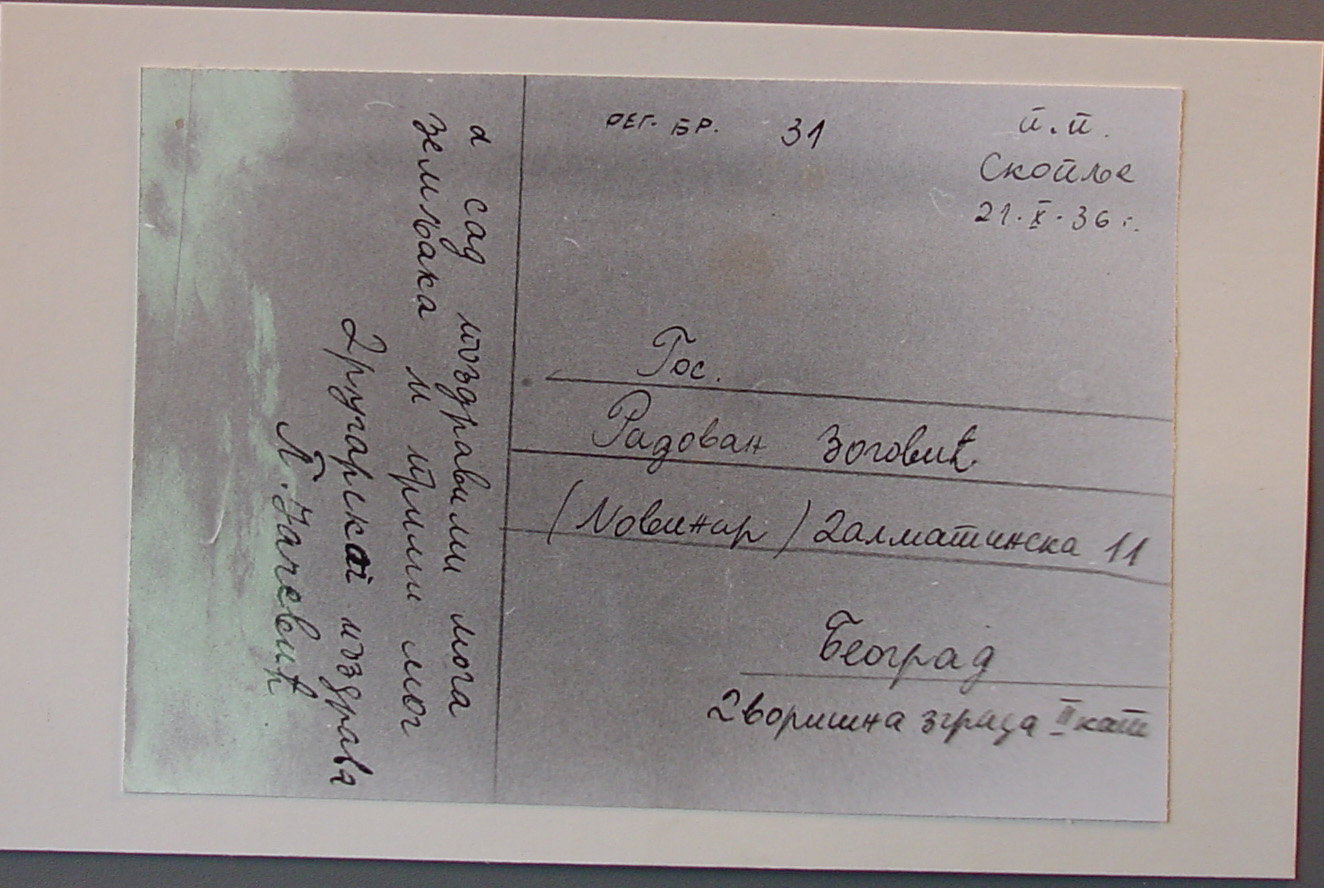 а сад поздравили мога
земљака и прими мог
другарског поздрава
рег. бр. 31
п.п.
Скопље
21.X.36 г.
Гос.
Радован Зоговић
(Новинар) Далматинска 11
Београд
Дворишна зграда II кат